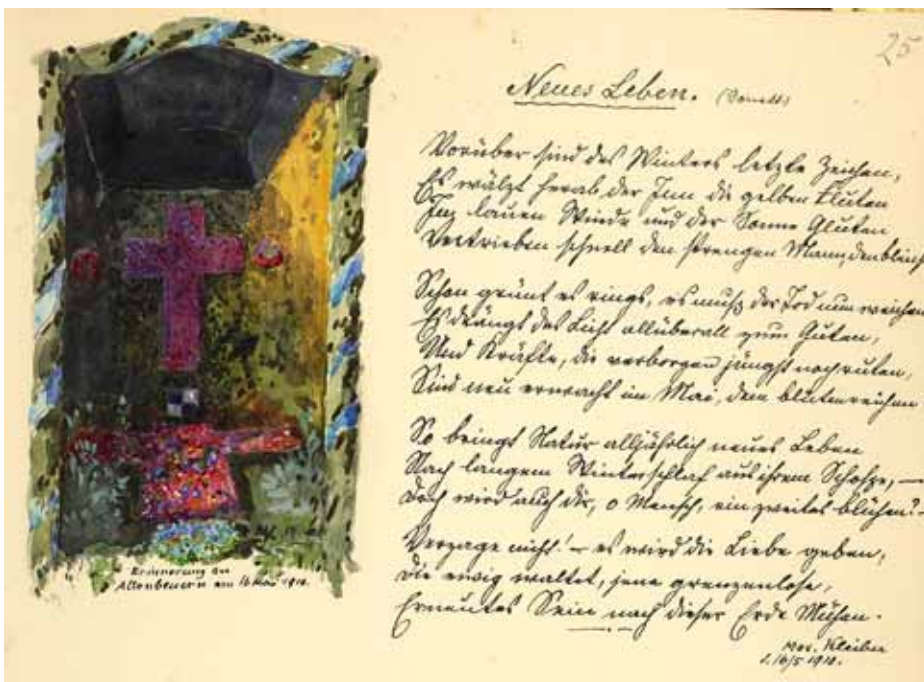 25
Neues Leben. (Sonett)
Vorüber sind des Winters letzte Zeichen,
Es wälzt herab der Inn die gelben Fluten
lauen Winde und der Sonne Gluten
Vertrieben schnell den strengen Mann, den bleich
Schon grünt es rings, es muß der Tod nun weichen
Es drängt das Licht allüberall zum Guten,
Und Kräfte, die verborgen jüngst noch ruten,
Sind neu erwacht im Mai, dem blütenreichen
So bringt Natur alljährlich neues Leben
Nach langem Winterschlaf aus ihrem Schoße, —
Doch wird auch dir, o Mensch, ein zweites blühen? -
Verzage nicht! – es wird die Liebe geben,
Die ewig waltet, jene grenzenlose,
Erneutes Sein nach dieser Erde Mühen.
Kleiber
16/5 1910.
Erinnerung an
Altenbeuern am 16 Mai 1910.